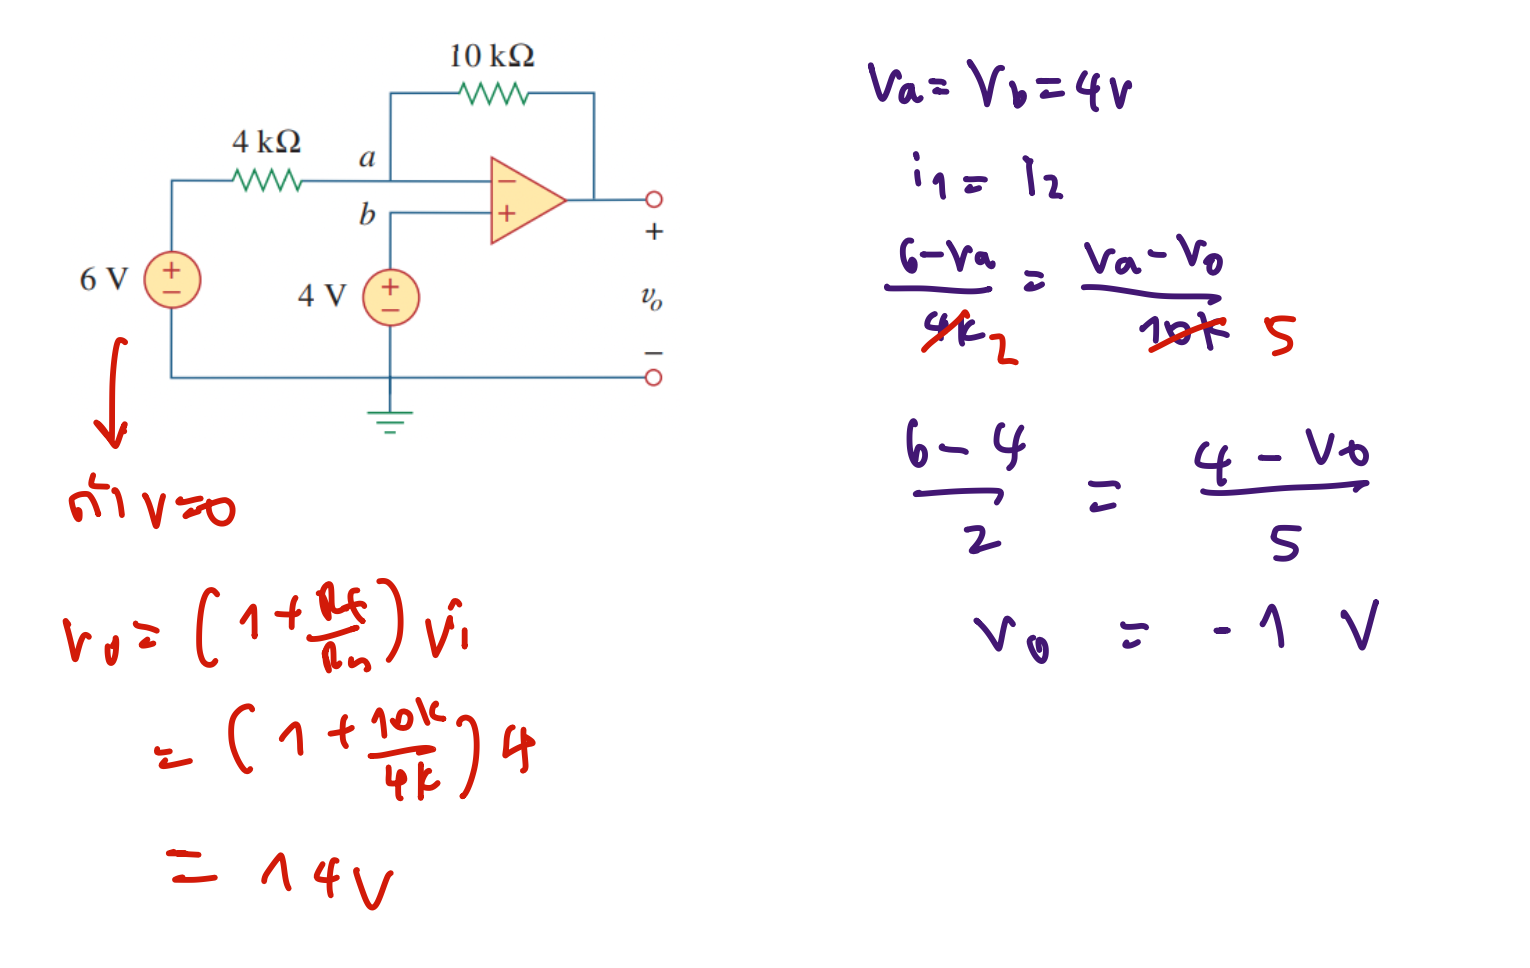 10 kΩ
4 kΩ
a
b
6 V
+
−
4 V
+
−
−
+
+
v₀
−
ถ้า V=0
V₀ = (1 + Rf/Rin) Vi
= (1 + 10k/4k) 4
= 14 V
Va = Vb = 4V
i1 = i2
6-Va/4k 2 = Va-Vo/10k 5
6-4/2 = 4-Vo/5
Vo = -1 V